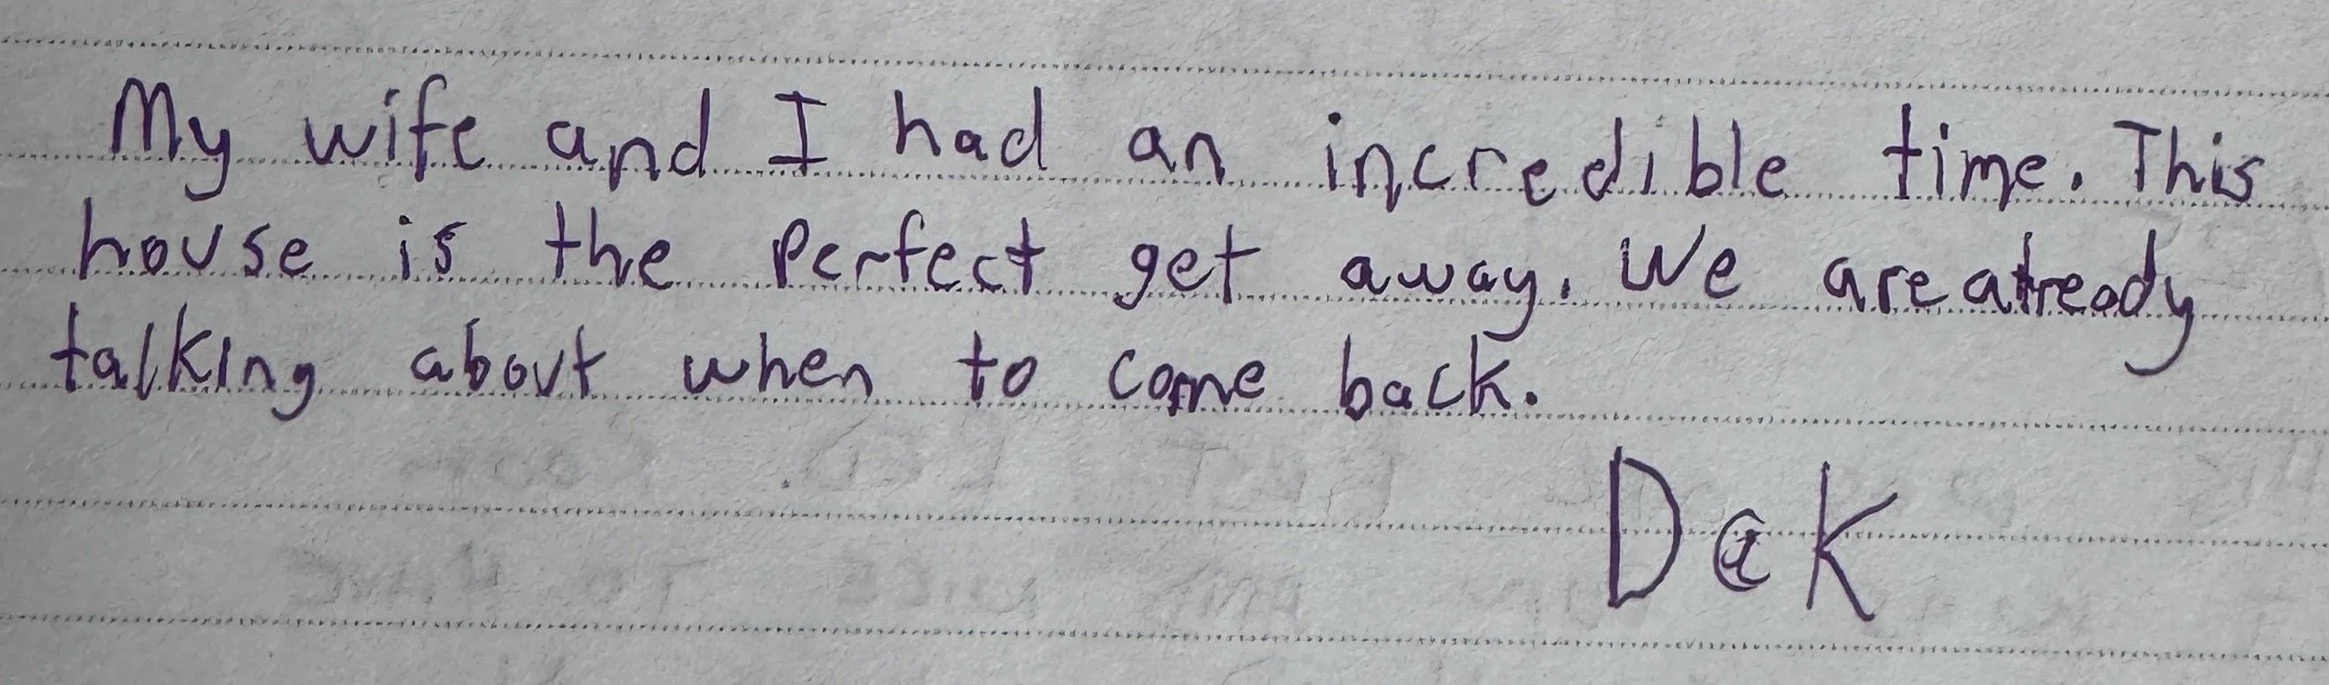 My wife and I had an incredible time. This
house is the perfect get away. We are already
talking about when to come back.
D & K